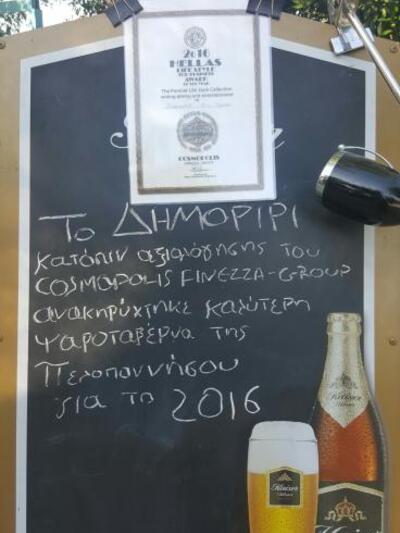 2016
HELLAS
LIFESTYLE
AWARD
COSMOPOLIS
Το ΔΗΜΟΡΙΡΙ
κατόπιν αξιολόγησης του
COSMOPOLIS FINEZZA-GROUP
ανακηρύχτηκε καλύτερη
ψαροταβέρνα της
Πελοποννήσου
για το 2016
Kaiser
Kaiser